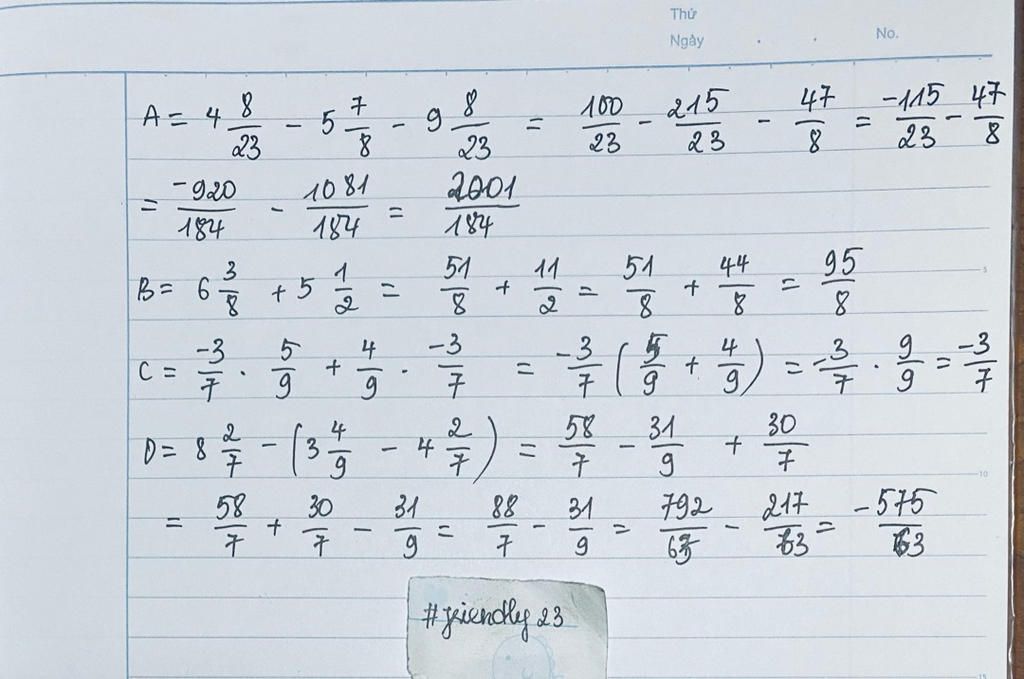 Thứ
Ngày . . No.
A = 4 8/23 - 5 7/8 - 9 8/23 = 100/23 - 215/23 - 47/8 = -115/23 - 47/8
= -920/184 - 1081/184 = 2001/184
B = 6 3/8 + 5 1/2 = 51/8 + 11/2 = 51/8 + 44/8 = 95/8
C = -3/7 . 5/9 + 4/9 . -3/7 = -3/7 (5/9 + 4/9) = -3/7 . 9/9 = -3/7
D = 8 2/7 - (3 4/9 - 4 2/7) = 58/7 - 31/9 + 30/7
= 58/7 + 30/7 - 31/9 = 88/7 - 31/9 = 792/63 - 217/63 = -575/63
#friendly 23
5
10
15